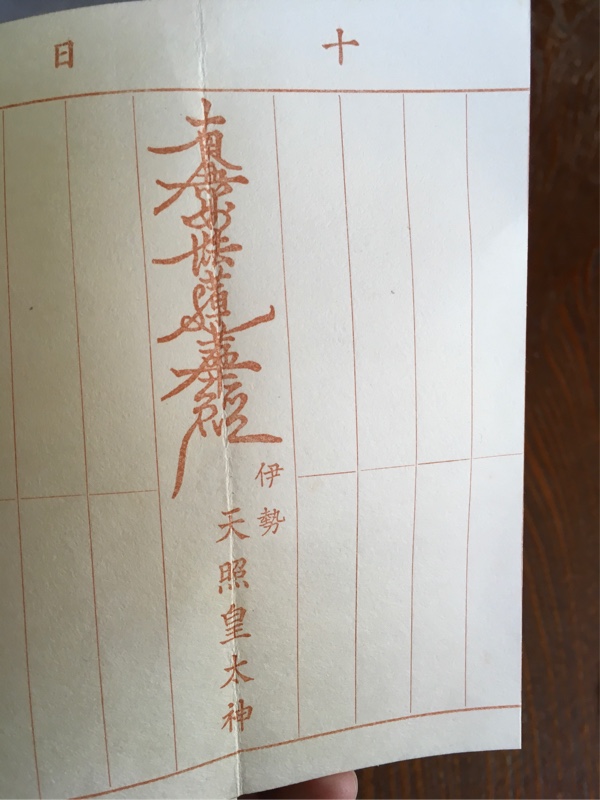 十日
南無妙法蓮華經
伊勢
天照皇太神